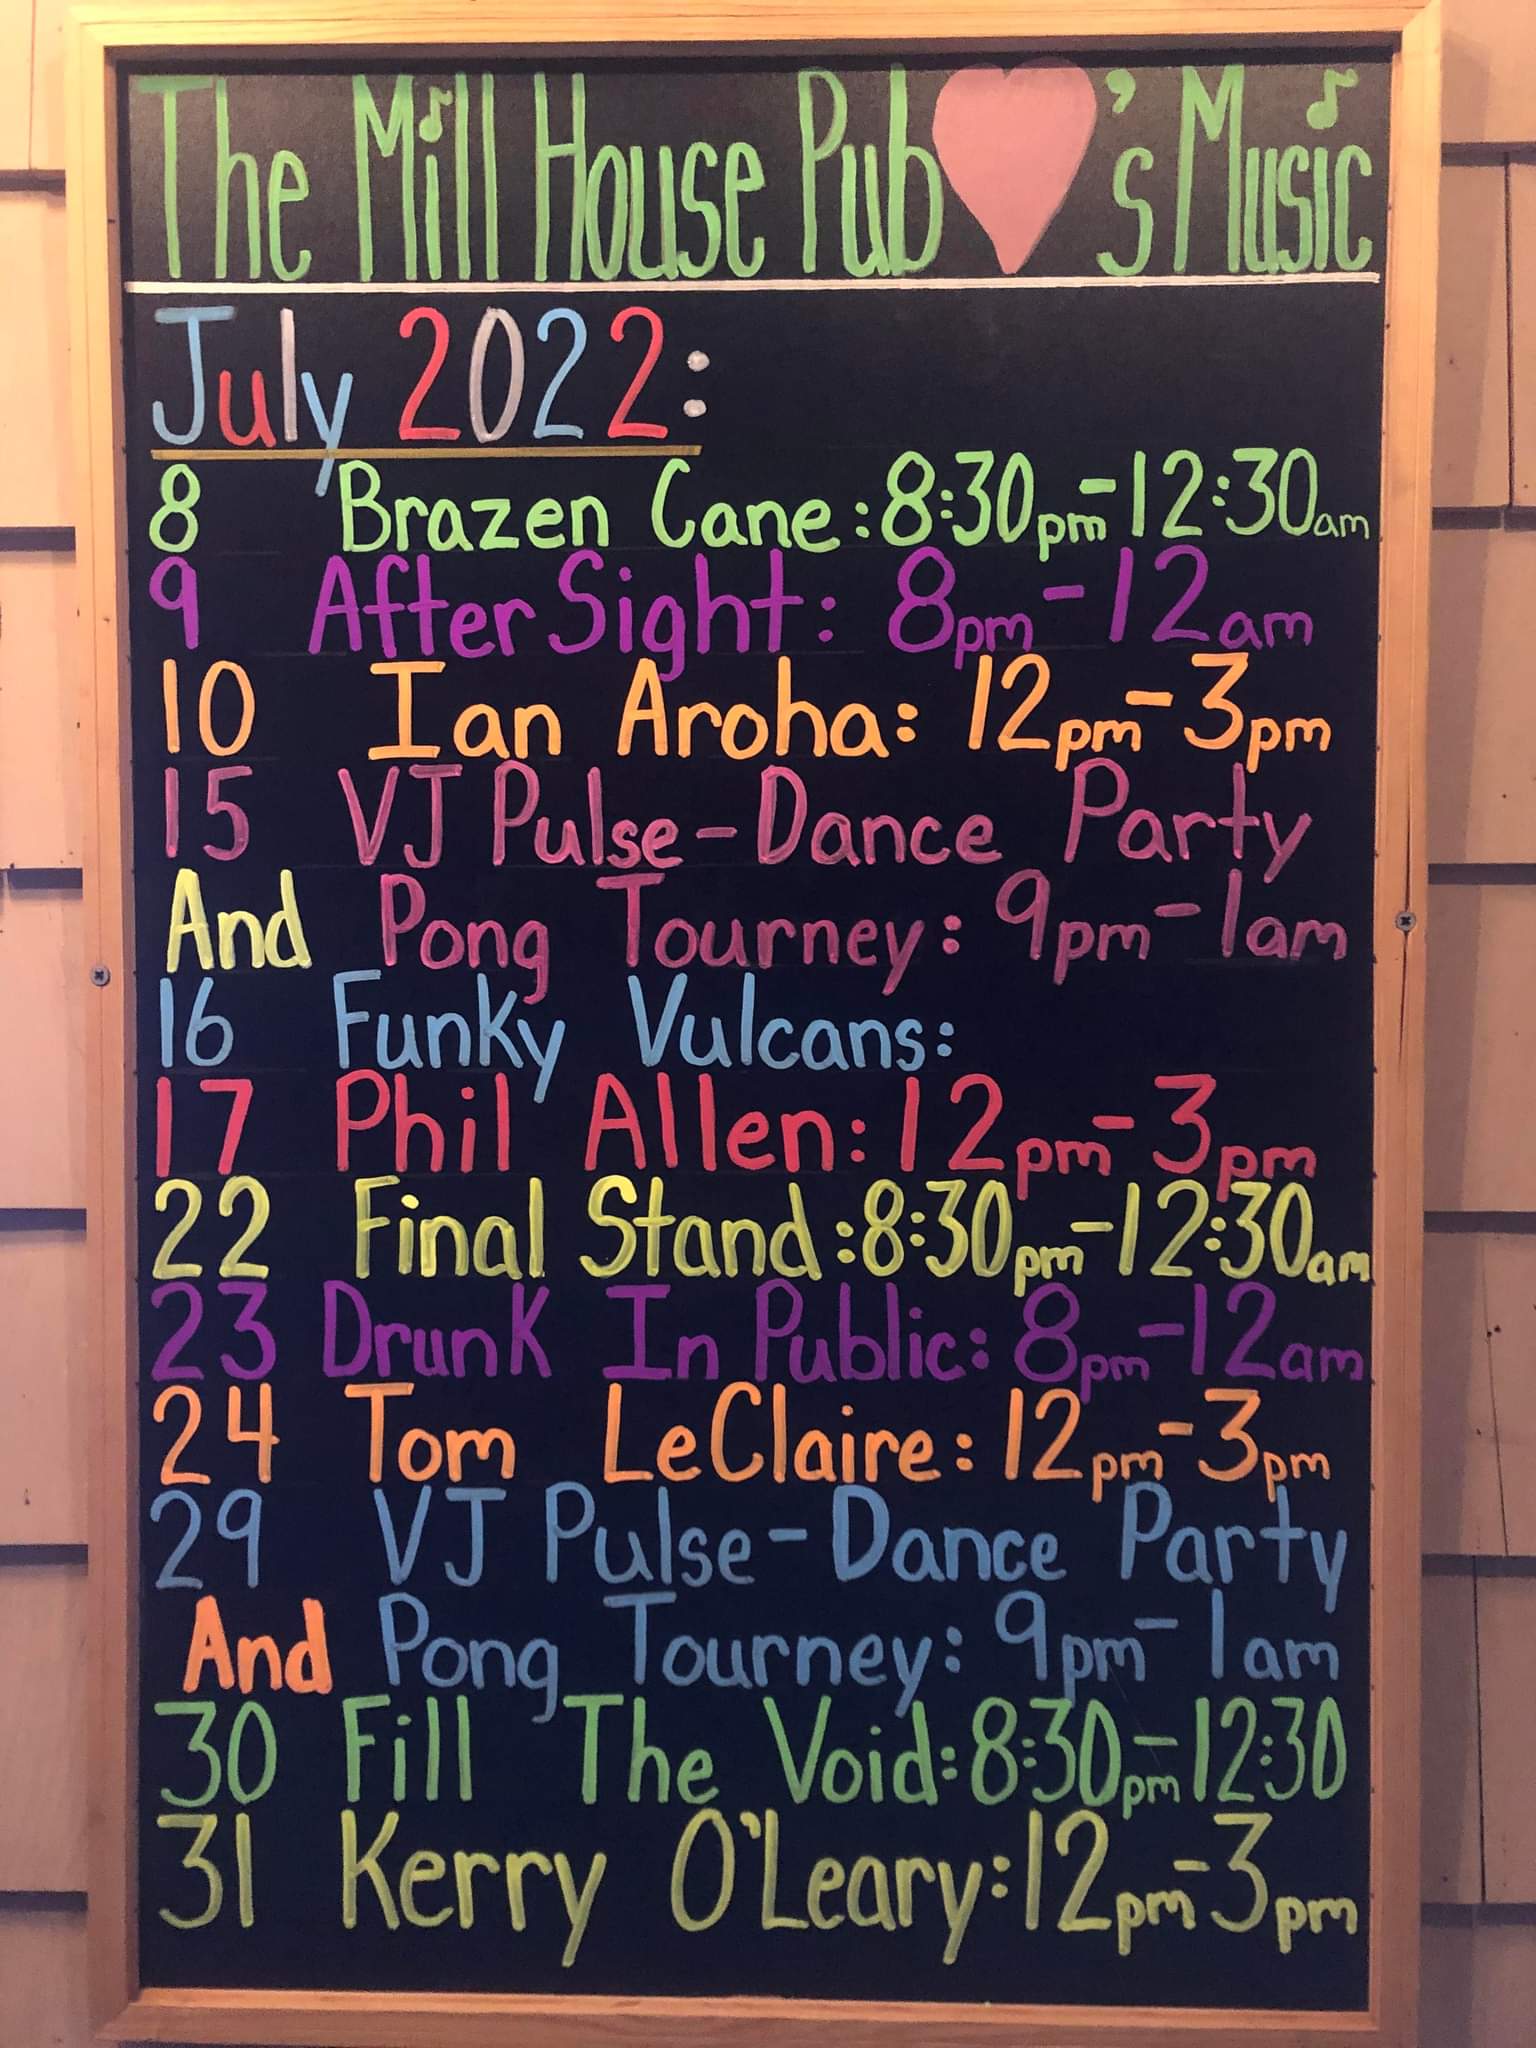 The Mill House Pub 's Music
July 2022:
8 Brazen Cane: 8:30pm-12:30am
9 AfterSight: 8pm-12am
10 Ian Aroha: 12pm-3pm
15 VJ Pulse-Dance Party
And Pong Tourney: 9pm-1am
16 Funky Vulcans:
17 Phil Allen: 12pm-3pm
22 Final Stand: 8:30pm-12:30am
23 Drunk In Public: 8pm-12am
24 Tom LeClaire: 12pm-3pm
29 VJ Pulse-Dance Party
And Pong Tourney: 9pm-1am
30 Fill The Void: 8:30pm-12:30
31 Kerry O'Leary: 12pm-3pm